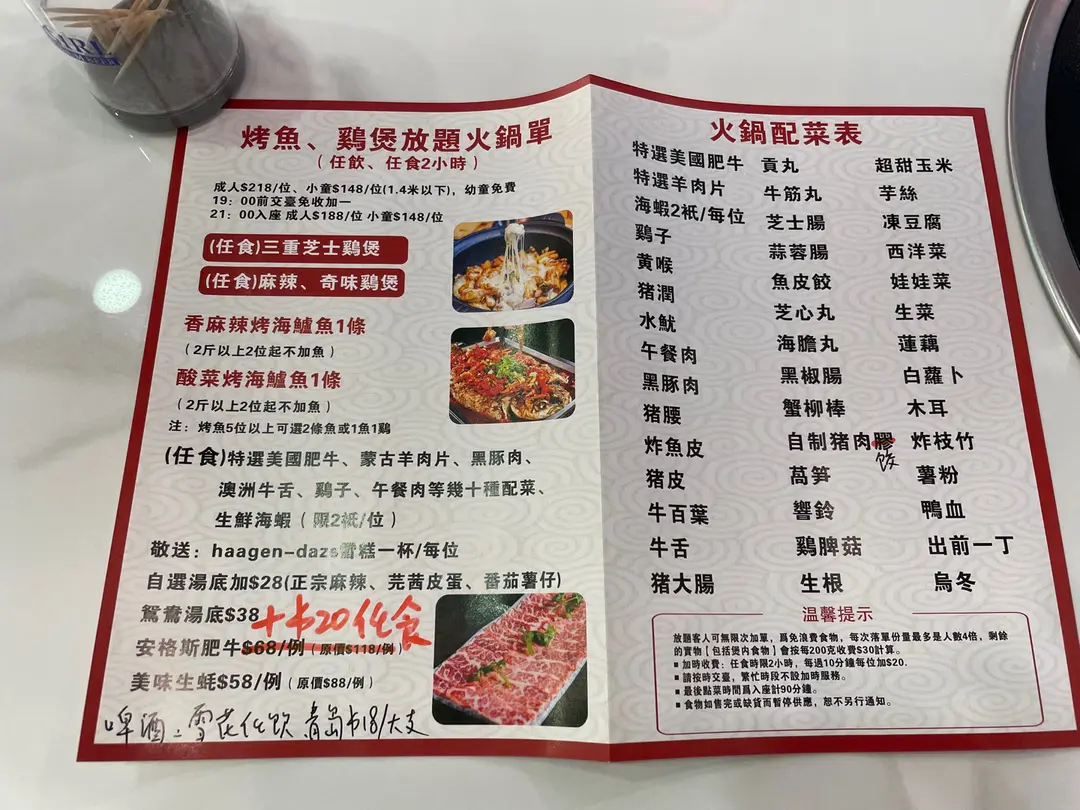 GIRL
烤魚、鷄煲放題火鍋單
(任飲、任食2小時)
成人$218/位、小童$148/位(1.4米以下)，幼童免費
19：00前交臺免收加一
21：00入座 成人$188/位 小童$148/位
(任食)三重芝士鷄煲
(任食)麻辣、奇味鷄煲
香麻辣烤海鱸魚1條
(2斤以上2位起不加魚)
酸菜烤海鱸魚1條
(2斤以上2位起不加魚)
注：烤魚5位以上可選2條魚或1魚1鷄
(任食)特選美國肥牛、蒙古羊肉片、黑豚肉、
澳洲牛舌、鷄子、午餐肉等幾十種配菜、
生鮮海蝦(限2衹/位)
敬送：haagen-dazs雪糕一杯/每位
自選湯底加$28(正宗麻辣、芫茜皮蛋、番茄薯仔)
鴛鴦湯底$38
+$20任食
安格斯肥牛$68/例(原價$118/例)
美味生蚝$58/例(原價$88/例)
啤酒：雪花任饮 青岛$18/大支
火鍋配菜表
特選美國肥牛 貢丸 超甜玉米
特選羊肉片 牛筋丸 芋絲
海蝦2衹/每位 芝士腸 凍豆腐
鷄子 蒜蓉腸 西洋菜
黄喉 魚皮餃 娃娃菜
猪潤 芝心丸 生菜
水魷 海膽丸 蓮藕
午餐肉 黑椒腸 白蘿卜
黑豚肉 蟹柳棒 木耳
猪腰 自制猪肉膠 炸枝竹
饺
炸魚皮 萵笋 薯粉
猪皮 響鈴 鴨血
牛百葉 鷄脾菇 出前一丁
牛舌 生根 烏冬
猪大腸
温馨提示
放題客人可無限次加單，爲免浪費食物，每次落單份量最多是人數4倍，剩餘
的實物[包括煲内食物]會按每200克收費$30計算。
■ 加時收費：任食時限2小時，每過10分鐘每位加$20.
■ 請按時交臺，繁忙時段不設加時服務。
■ 最後點菜時間爲入座計90分鐘。
■ 食物如售完或缺貨而暫停供應，恕不另行通知。